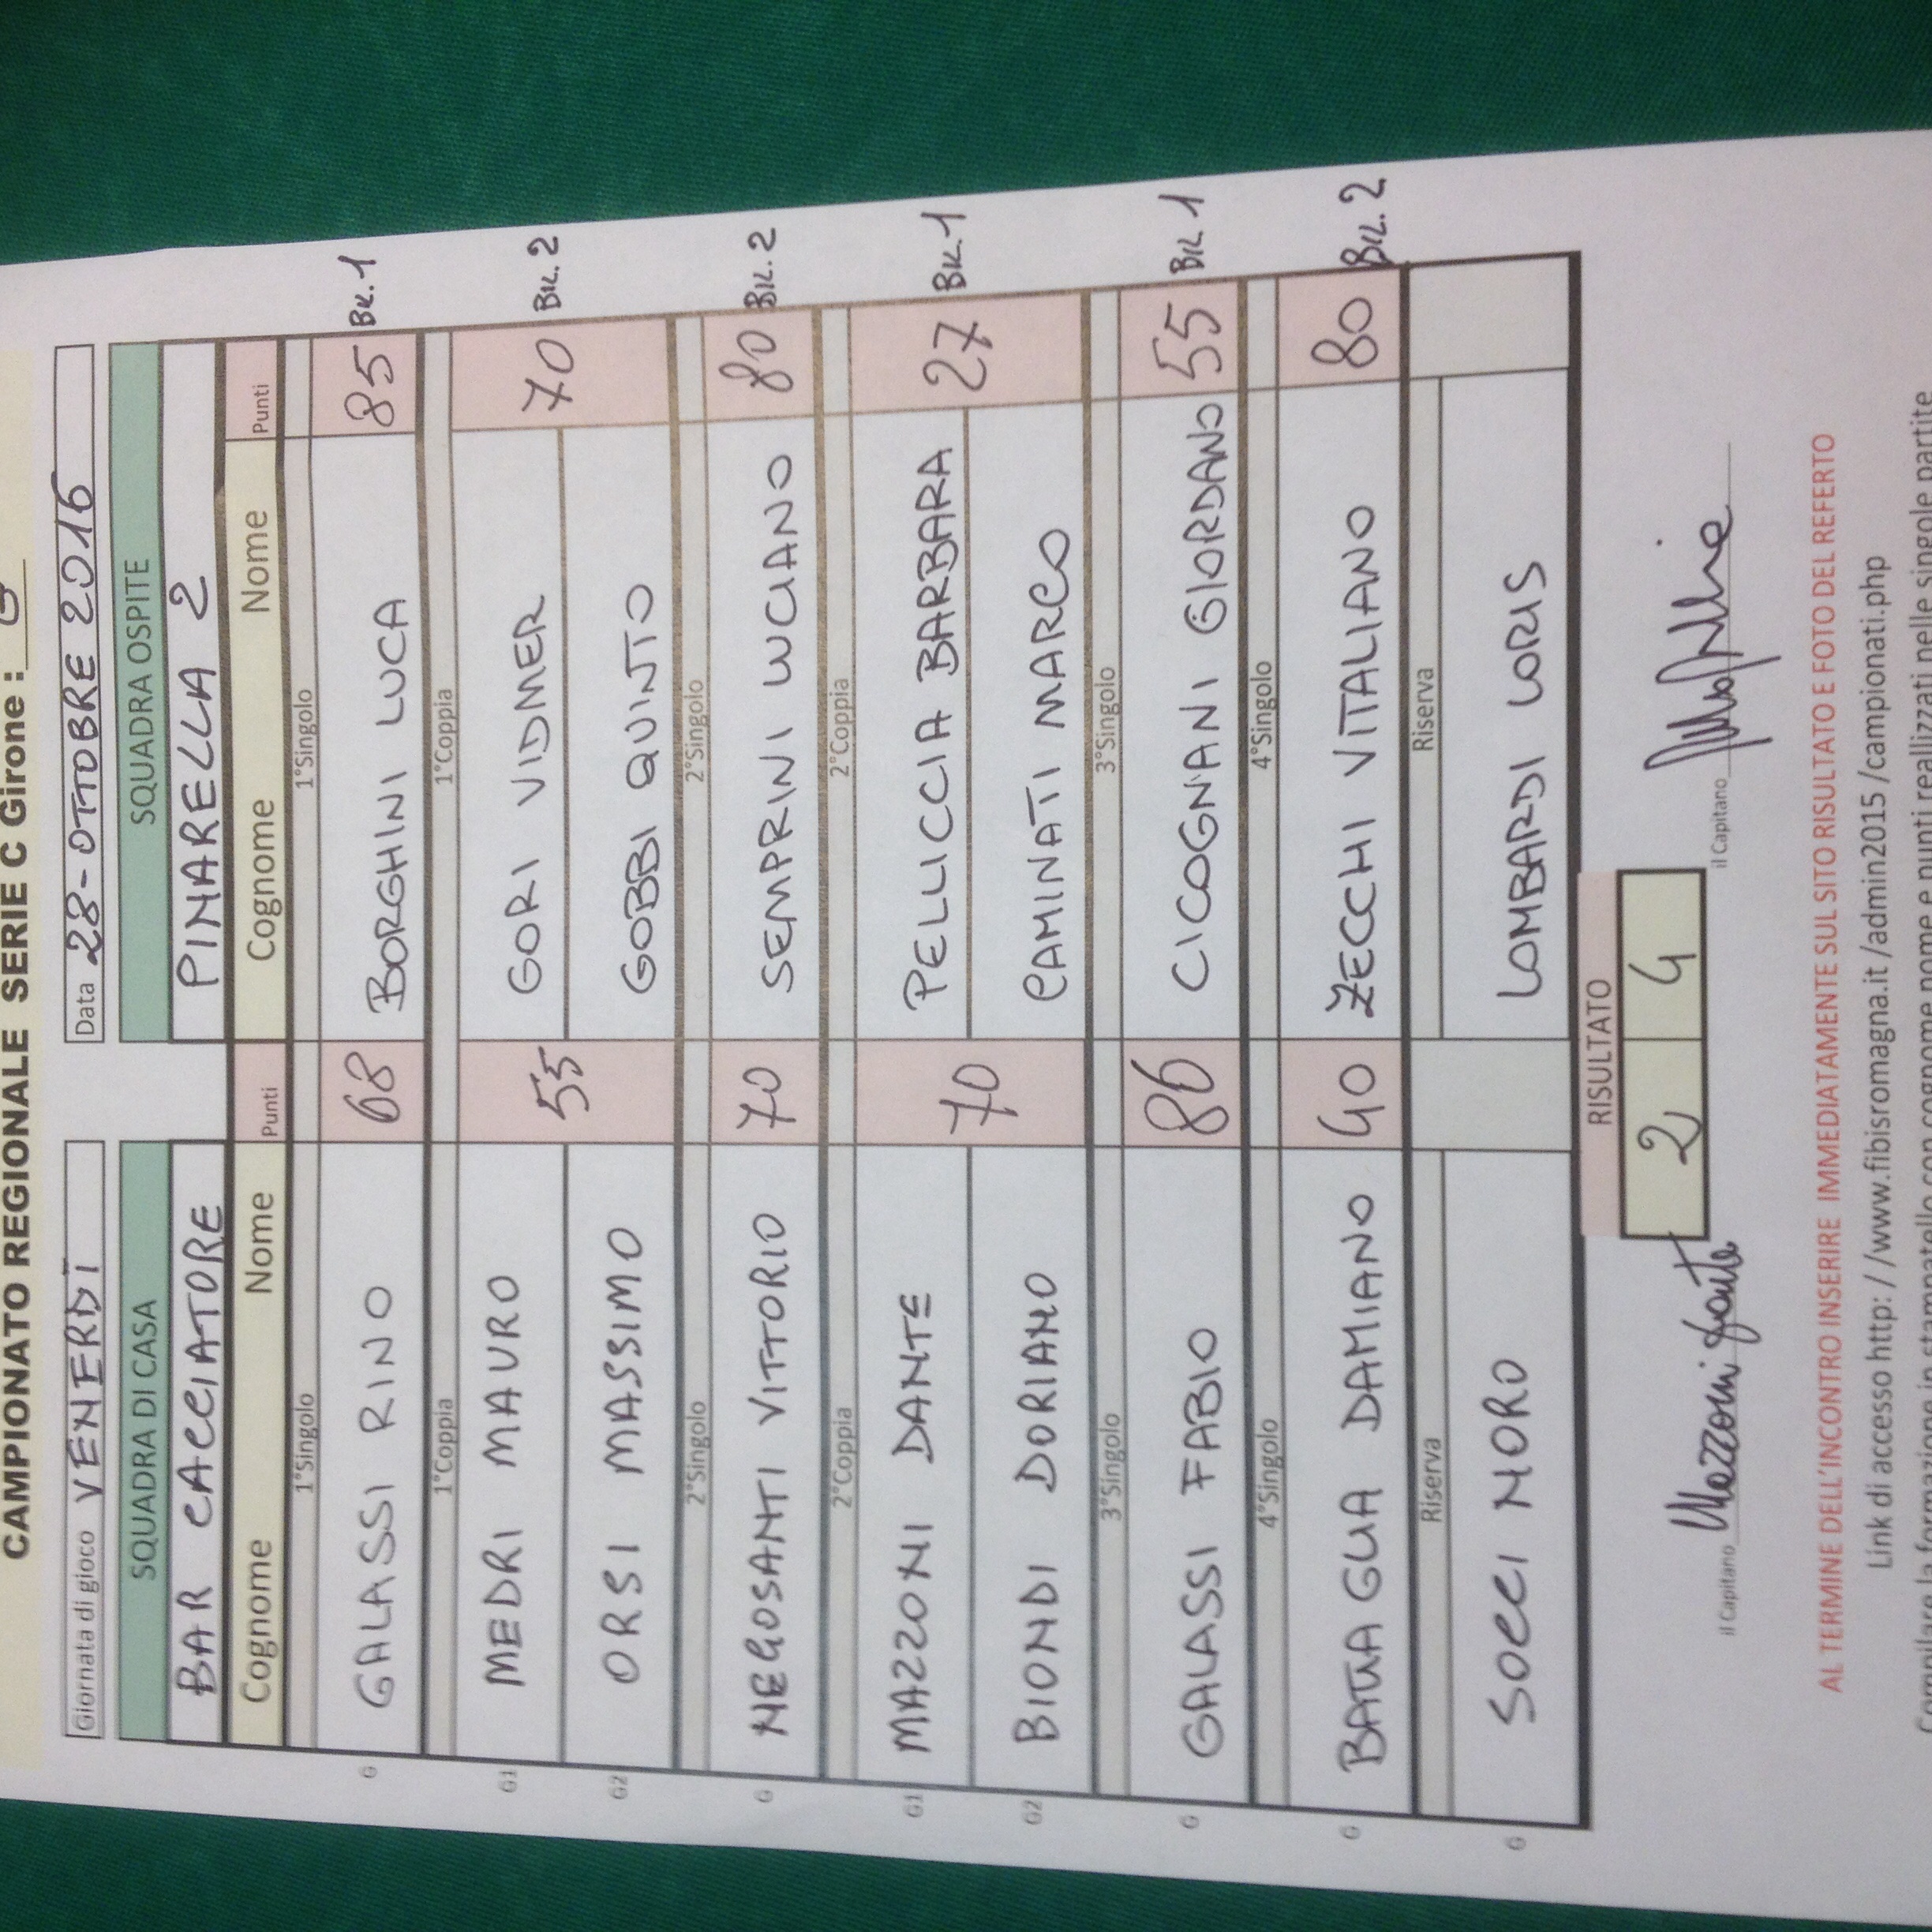 CAMPIONATO REGIONALE SERIE C Girone :
Giornata di gioco VENERDÌ Data 28-OTTOBRE 2016
SQUADRA DI CASA SQUADRA OSPITE
BAR CACCIATORE PINARELLA 2
Cognome Nome Punti Cognome Nome Punti
1°Singolo 1°Singolo
G GALASSI RINO 68 BORGHINI LUCA 85 BIL.1
1°Coppia 1°Coppia
G1 MEDRI MAURO 55 GORI VIDMER 70 BIL.2
G2 ORSI MASSIMO GOBBI QUINTO
2°Singolo 2°Singolo
G NEGOSANTI VITTORIO 70 SEMPRINI LUCIANO 80 BIL.2
2°Coppia 2°Coppia
G1 MAZZONI DANTE 70 PELLICCIA BARBARA 27 BIL.1
G2 BIONDI DORIANO CAMINATI MARCO
3°Singolo 3°Singolo
G GALASSI FABIO 86 CICOGNANI GIORDANO 55 BIL 1
4°Singolo 4°Singolo
G BATTAGLIA DAMIANO 40 ZECCHI VITALIANO 80 BIL.2
Riserva Riserva
G SOCCI MORO LOMBARDI LORIS
RISULTATO
2 4
il Capitano Mazzoni Dante il Capitano
AL TERMINE DELL'INCONTRO INSERIRE IMMEDIATAMENTE SUL SITO RISULTATO E FOTO DEL REFERTO
Link di accesso http: / /www.fibisromagna.it /admin2015 /campionati.php
Compilare la formazione in stampatello con cognome nome e punti realizzati nelle singole partite